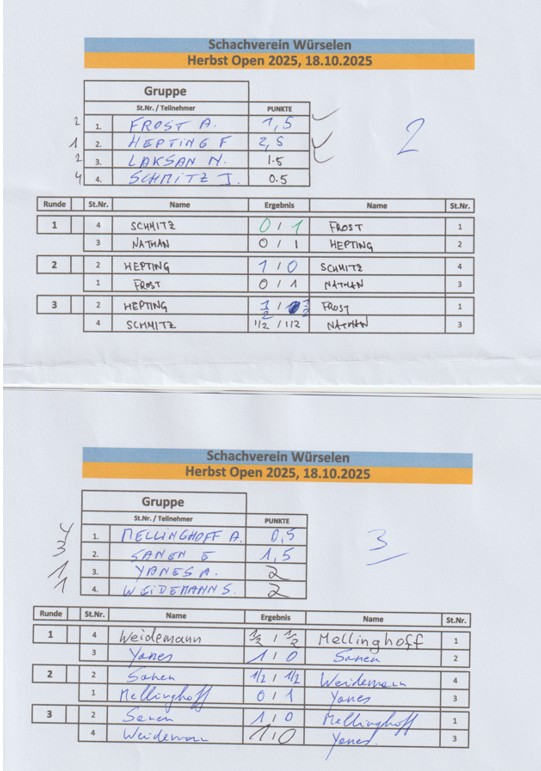 Schachverein Würselen
Herbst Open 2025, 18.10.2025
Gruppe
St.Nr. / Teilnehmer PUNKTE
2 1. FROST A. 1,5
1 2. HEPTING F 2,5
2 3. LAKSAN N. 1.5
4 4. SCHMITZ J. 0.5
2
Runde St.Nr. Name Ergebnis Name St.Nr.
1 4 SCHMITZ 0 / 1 FROST 1
3 NATHAN 0 / 1 HEPTING 2
2 2 HEPTING 1 / 0 SCHMITZ 4
1 FROST 0 / 1 NATHAN 3
3 2 HEPTING 1/2 / 1/2 FROST 1
4 SCHMITZ 1/2 / 1/2 NATHAN 3
Schachverein Würselen
Herbst Open 2025, 18.10.2025
Gruppe
St.Nr. / Teilnehmer PUNKTE
4 1. MELLINGHOFF A. 0,5
3 2. SANEN E 1,5
1 3. YANES A. 2
1 4. WEIDEMANN S. 2
3
Runde St.Nr. Name Ergebnis Name St.Nr.
1 4 Weidemann 1/2 / 1/2 Mellinghoff 1
3 Yanes 1 / 0 Sanen 2
2 2 Sanen 1/2 / 1/2 Weidemann 4
1 Mellinghoff 0 / 1 Yanes 3
3 2 Sanen 1 / 0 Mellinghoff 1
4 Weideman 1 / 0 Yanes. 3